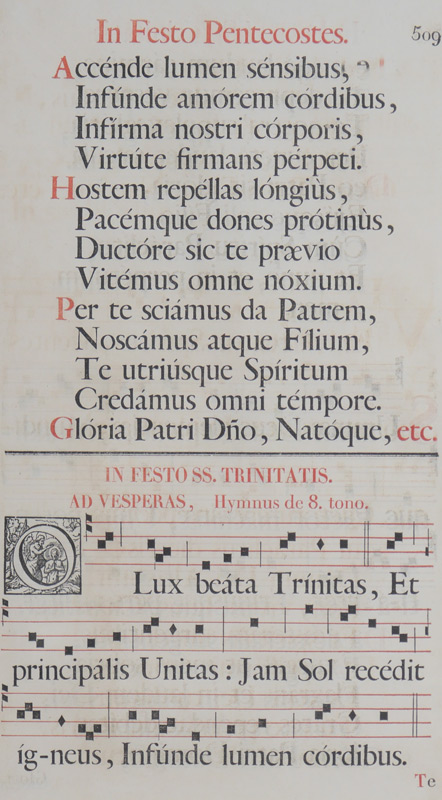 In Festo Pentecostes. 509
Accénde lumen sénsibus,
Infúnde amórem córdibus,
Infírma nostri córporis,
Virtúte firmans pérpeti.
Hostem repéllas lóngiùs,
Pacémque dones prótinùs,
Ductóre sic te prævio
Vitémus omne nóxium.
Per te sciámus da Patrem,
Noscámus atque Fílium,
Te utriúsque Spíritum
Credámus omni témpore.
Glória Patri Dño, Natóque, etc.
IN FESTO SS. TRINITATIS.
AD VESPERAS, Hymnus de 8. tono.
O Lux beáta Trínitas, Et
principális Unitas: Jam Sol recédit
íg-neus, Infúnde lumen córdibus.
Te